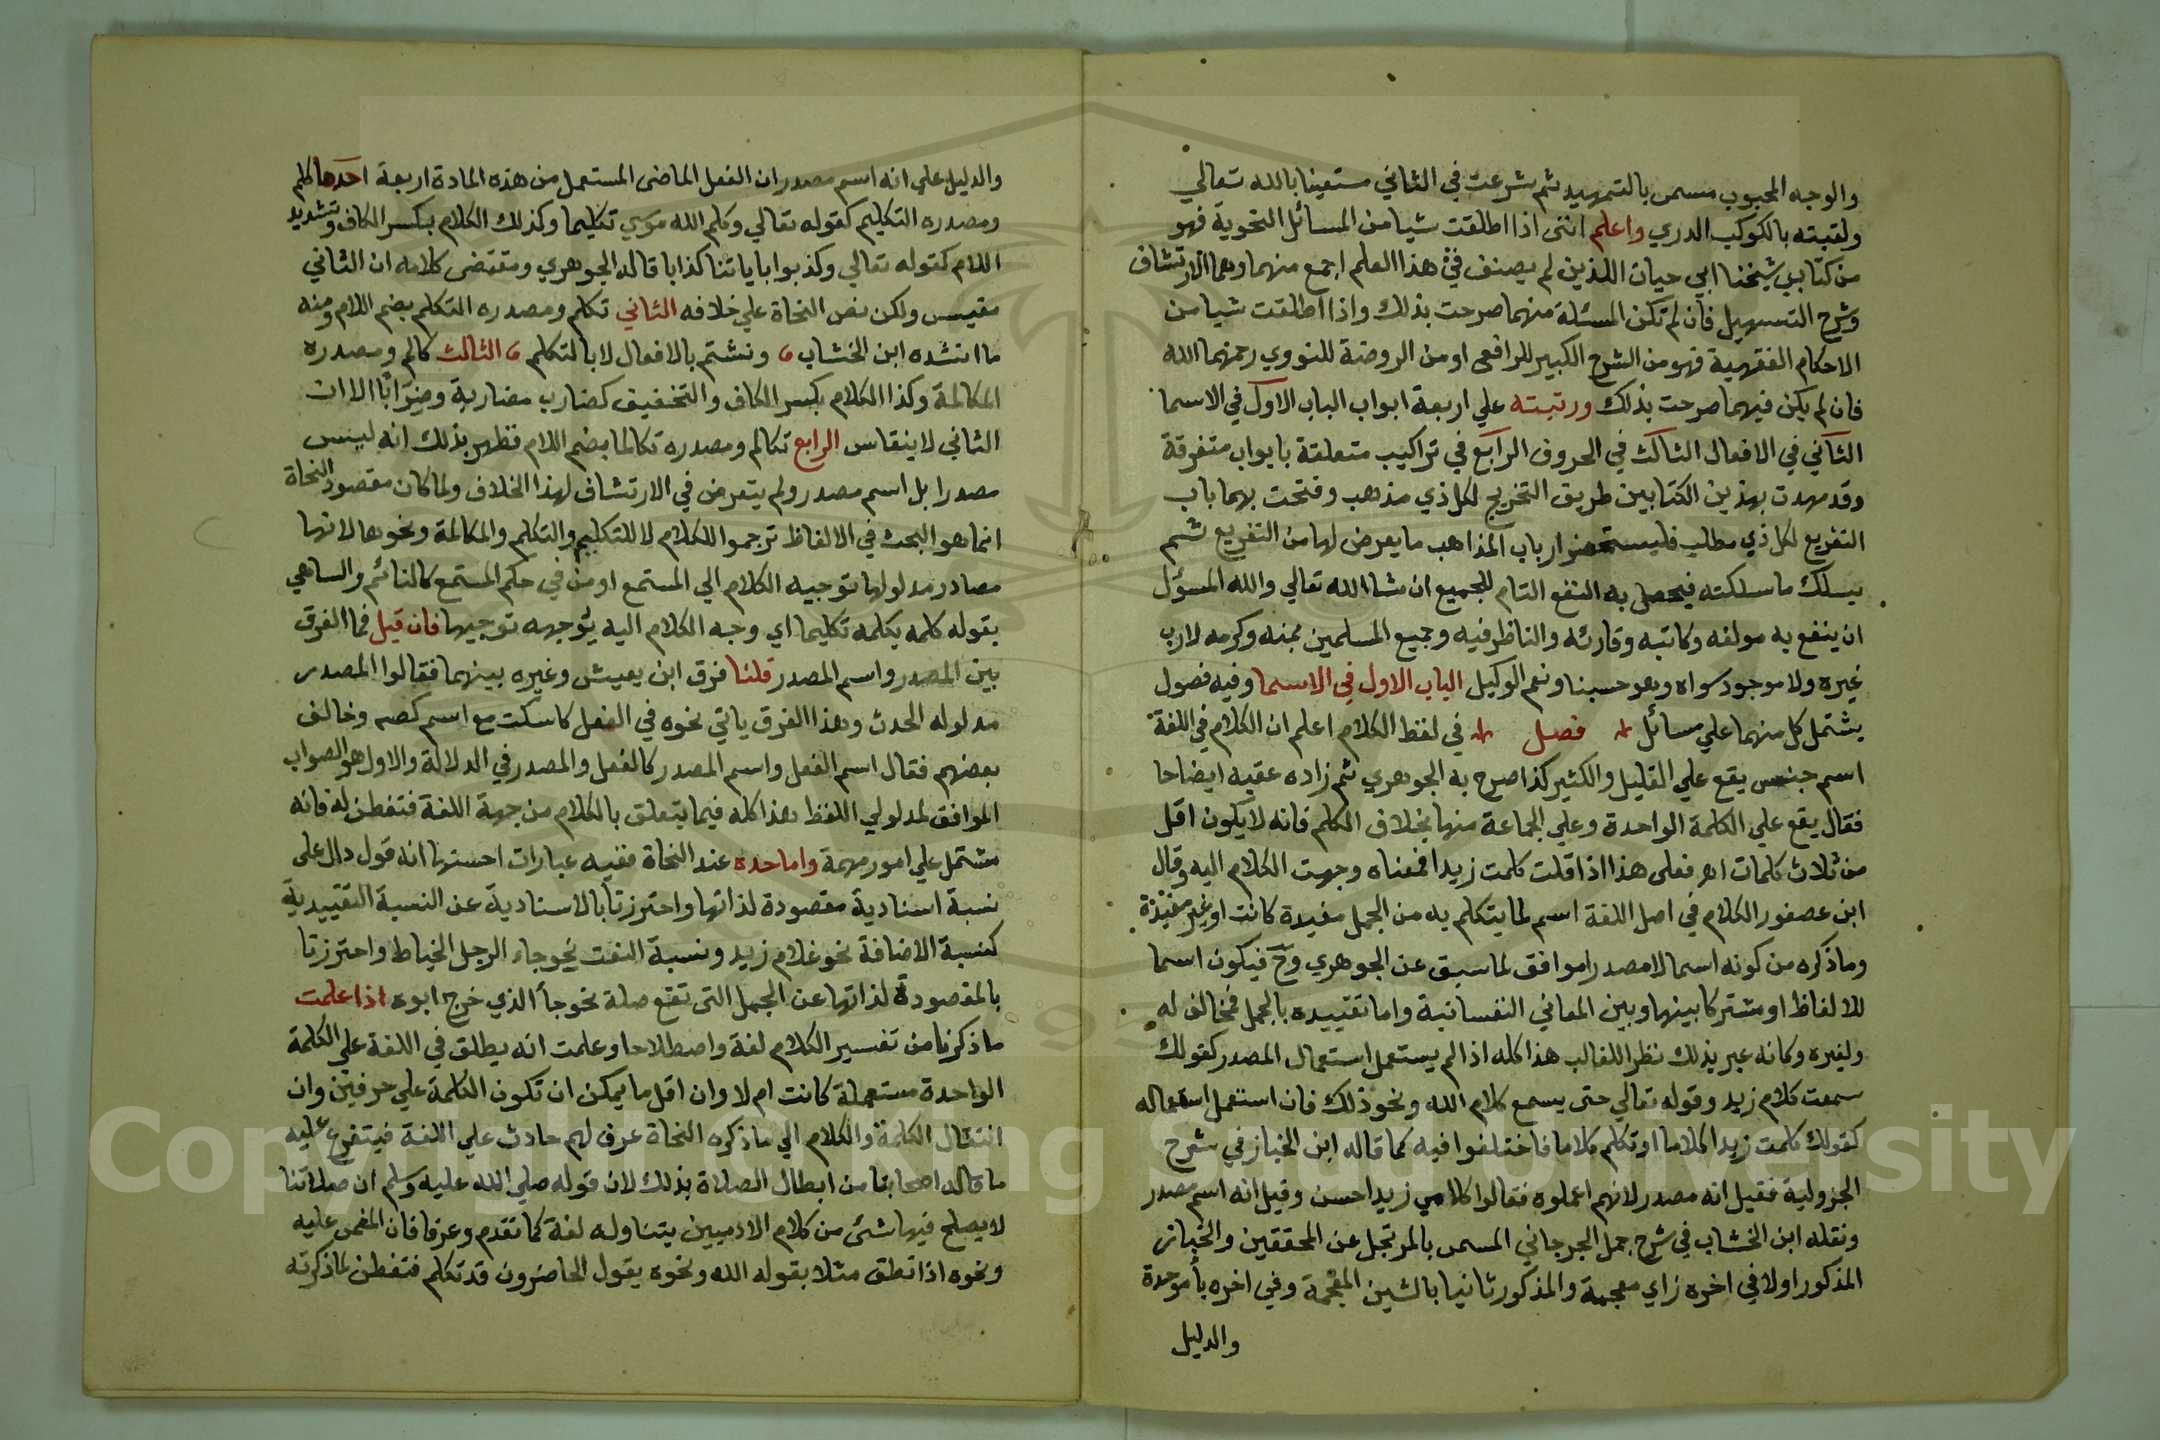 والوجه المحبوب مسمى بالتمهيد ثم شرعت في الثاني مستعينا بالله تعالي
ولقبته بالكوكب الدري واعلم انني اذا اطلقت شيا من المسائل النحوية فهو
من كتابي شيخنا ابي حيان اللذين لم يصنف في هذا العلم اجمع منهما وهما الارتشاف
وشرح التسهيل فان لم تكن المسئلة منهما صرحت بذلك واذا اطلقت شيا من
الاحكام الفقهية فهو من الشرح الكبير للرافعى او من الروضة للنووي رحمهما الله
فان لم يكن فيهما صرحت بذلك ورتبته علي اربعة ابواب الباب الاول في الاسما
الثاني في الافعال الثالث في الحروف الرابع في تراكيب متعلقة بابواب متفرقة
وقد مهدت بهذين الكتابين طريق التخريج لكل ذي مذهب وفتحت بهما باب
التفريع لكل ذي مطلب فليستحضر ارباب المذاهب ما يعرض لها من التفريع ثم
يسلك ما سلكته فيحصل به النفع التام للجميع ان شا الله تعالي والله المسؤل
ان ينفع به مولفه وكاتبه وقارئه والناظر فيه وجميع المسلمين بمنه وكرمه لا رب
غيره ولا موجود سواه وهو حسبنا ونعم الوكيل الباب الاول في الاسما وفيه فصول
يشتمل كل منهما علي مسائل فصل في لفظ الكلام اعلم ان الكلام في اللغة
اسم جنس يقع علي القليل والكثير كذا صرح به الجوهري ثم زاده عقبه ايضاحا
فقال يقع علي الكلمة الواحدة وعلي الجماعة منها بخلاف الكلم فانه لا يكون اقل
من ثلاث كلمات اه فعلى هذا اذا قلت كلمت زيدا فمعناه وجهت الكلام اليه وقال
ابن عصفور الكلام في اصل اللغة اسم لما يتكلم به من الجمل مفيدة كانت او غير مفيدة
وما ذكره من كونه اسما لا مصدرا موافق لما سبق عن الجوهري وح فيكون اسما
للالفاظ او مشتركا بينها وبين المعاني النفسانية واما تقييده بالجمل فمخالف له
ولغيره وكانه عبر بذلك نظرا للغالب هذا كله اذا لم يستعمل استعمال المصدر كقولك
سمعت كلام زيد وقوله تعالي حتى يسمع كلام الله ونحو ذلك فان استعمل استعماله
كقولك كلمت زيدا كلاما او تكلم كلاما فاختلفوا فيه كما قاله ابن الخباز في شرح
الجزولية فقيل انه مصدر لانهم اعملوه فقالوا كلامي زيدا حسن وقيل انه اسم مصدر
ونقله ابن الخشاب في شرح جمل الجرجاني المسمى بالمرتجل عن المحققين والخباز
المذكور اولا في اخره زاي معجمة والمذكور ثانيا بالشين المعجمة وفي اخره با موحدة
والدليل
والدليل علي انه اسم مصدر ان الفعل الماضى المستعمل من هذه المادة اربعة احدها كلم
ومصدره التكليم كقوله تعالي وكلم الله موسي تكليما وكذلك الكلام بكسر الكاف وتشديد
اللام كقوله تعالي وكذبوا باياتنا كذابا قاله الجوهري ومقتضى كلامه ان الثاني
مقيس ولكن نص النحاة علي خلافه الثاني تكلم ومصدره التكلم بضم اللام ومنه
ما انشده ابن الخشاب ونشتم بالافعال لا بالتكلم الثالث كالم ومصدره
المكالمة وكذا الكلام بكسر الكاف والتخفيف كضارب مضاربة وضرابا الا ان
الثاني لا ينقاس الرابع تكالم ومصدره تكالما بضم اللام فظهر بذلك انه ليس
مصدرا بل اسم مصدر ولم يتعرض في الارتشاف لهذا الخلاف ولما كان مقصود النحاة
انما هو البحث في الالفاظ ترجموا للكلام لا للتكليم والتكلم والمكالمة ونحوها لانها
مصادر مدلولها توجيه الكلام الي المستمع او من في حكم المستمع كالنائم والساهي
بقوله كلمه يكلمه تكليما اي وجه الكلام اليه يوجهه توجيها فان قيل فما الفرق
بين المصدر واسم المصدر قلنا فرق ابن يعيش وغيره بينهما فقالوا المصدر
مدلوله الحدث وهذا الفرق ياتي نحوه في الفعل كاسكت مع اسم كصه وخالف
بعضهم فقال اسم الفعل واسم المصدر كالفعل والمصدر في الدلالة والاول هو الصواب
الموافق لمدلولي اللفظ هذا كله فيما يتعلق بالكلام من جهة اللغة فتفطن له فانه
مشتمل علي امور مهمة واما حده عند النحاة ففيه عبارات احسنها انه قول دال على
نسبة اسنادية مقصودة لذاتها واحترزنا بالاسنادية عن النسبة التقييدية
كنسبة الاضافة نحو غلام زيد ونسبة النعت نحو جاء الرجل الخياط واحترزنا
بالمقصودة لذاتها عن الجمل التى تقع صلة نحو جا الذي خرج ابوه اذا علمت
ما ذكرنا من تفسير الكلام لغة واصطلاحا وعلمت انه يطلق في اللغة علي الكلمة
الواحدة مستعملة كانت ام لا وان اقل ما يمكن ان تكون الكلمة علي حرفين وان
انتقال الكلمة والكلام الي ما ذكره النحاة عرف لهم حادث علي اللغة فيتفرع عليه
ما قاله اصحابنا من ابطال الصلاة بذلك لان قوله صلي الله عليه وسلم ان صلاتنا
لا يصلح فيها شئ من كلام الادميين يتناوله لغة كما تقدم وعرفا فان المغمى عليه
ونحوه اذا نطق مثلا بقوله الله ونحوه يقول الحاضرون قد تكلم فتفطن لما ذكرته
Copyright © King Saud University